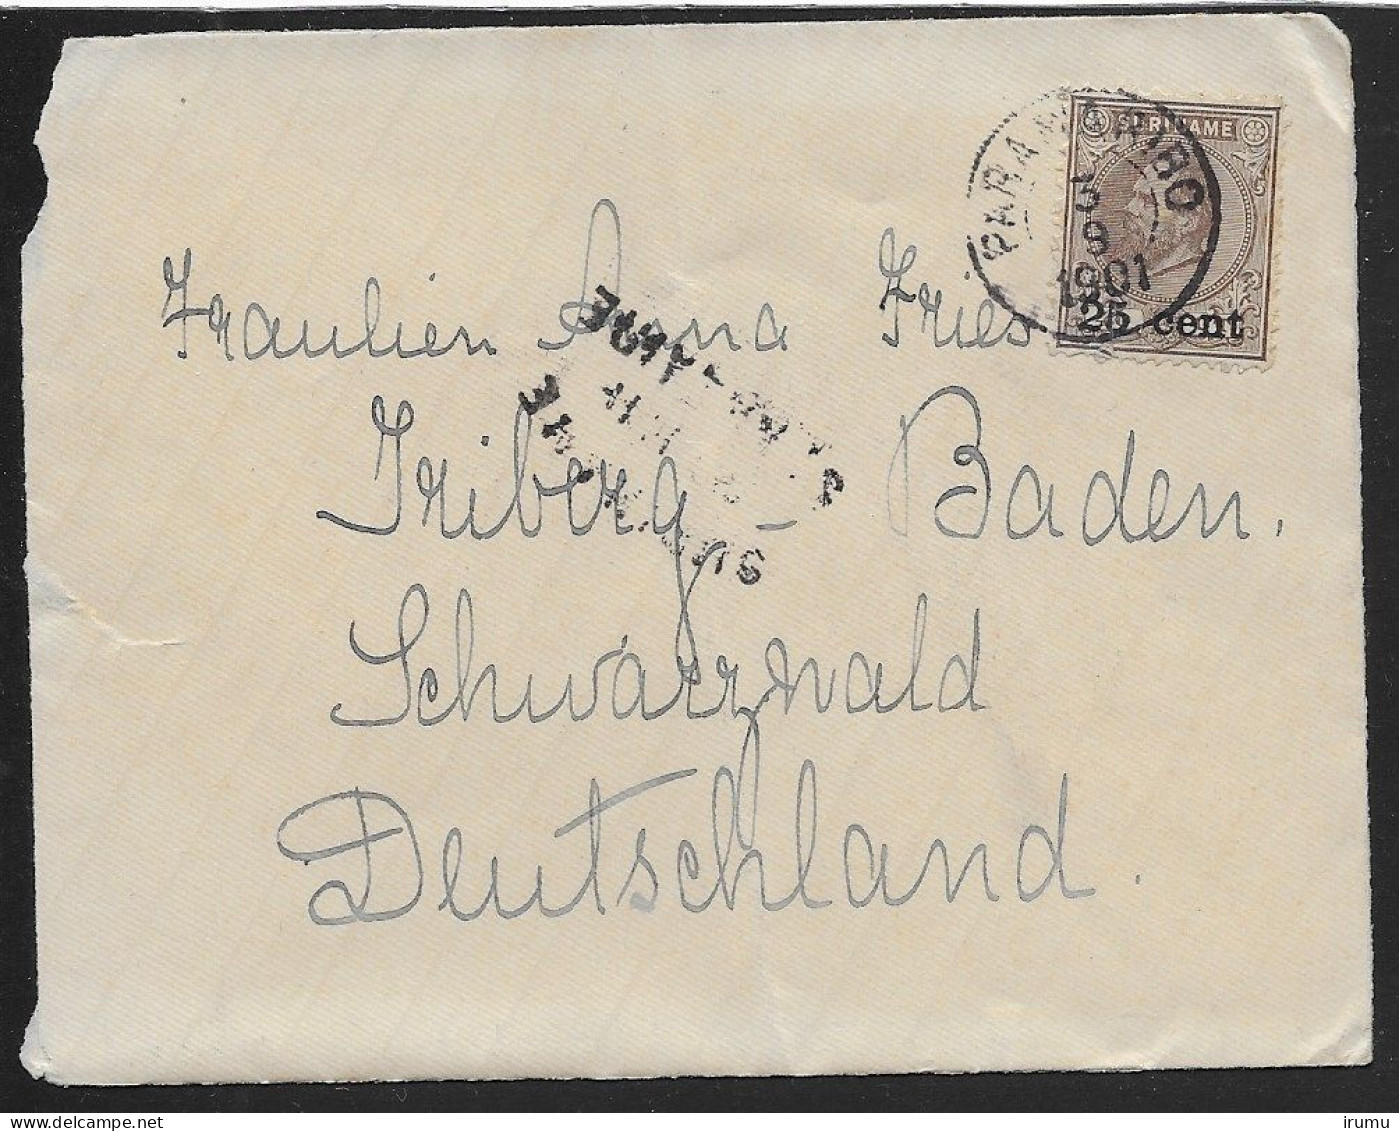 SURINAME
PARAMARIBO
3
8
1901
25 cent
Fraulien Anna Fries
Triberg - Baden.
Schwarzwald
Deutschland.
irumu